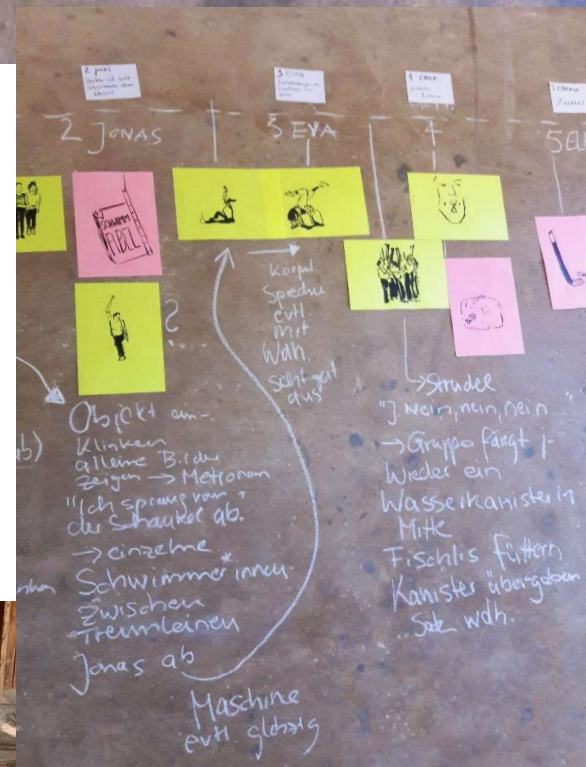 2 JONAS
3 EVA
4
5 EL
SCHWIMM
FIBEL
?
Körpl.
Sprechen
evtl.
mit
Wdh.
Seht gut
aus
Objekt ein-
Klinken
alleine Bilder
zeigen → Metronom
"Ich sprang von
der Schaukel ab.
→ einzelne
Schwimmer*innen
Zwischen
Trennleinen
Jonas ab
Maschine
evtl.
→ Strudel
Nein, nein, nein
→ Gruppe fängt
Wieder ein
Wasserkanister in
Mitte
Fischlis füttern
Kanister übergeben
Satz wdh.